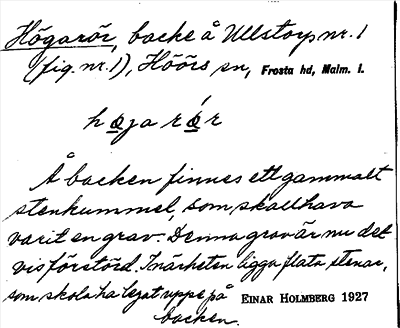 Högarör, backe å Ullstorp nr. 1
(fig. nr. 1), Höörs sn, Frosta hd, Malm. l.
højarǿr
Å backen finnes ett gammalt
stenkummel, som skall hava
varit en grav. Denna grav är nu det
vis förstörd. I närheten ligga flata stenar,
som skola ha legat uppe på EINAR HOLMBERG 1927
backen.